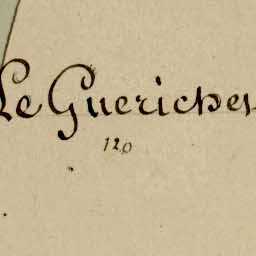 Le Guerichen
120